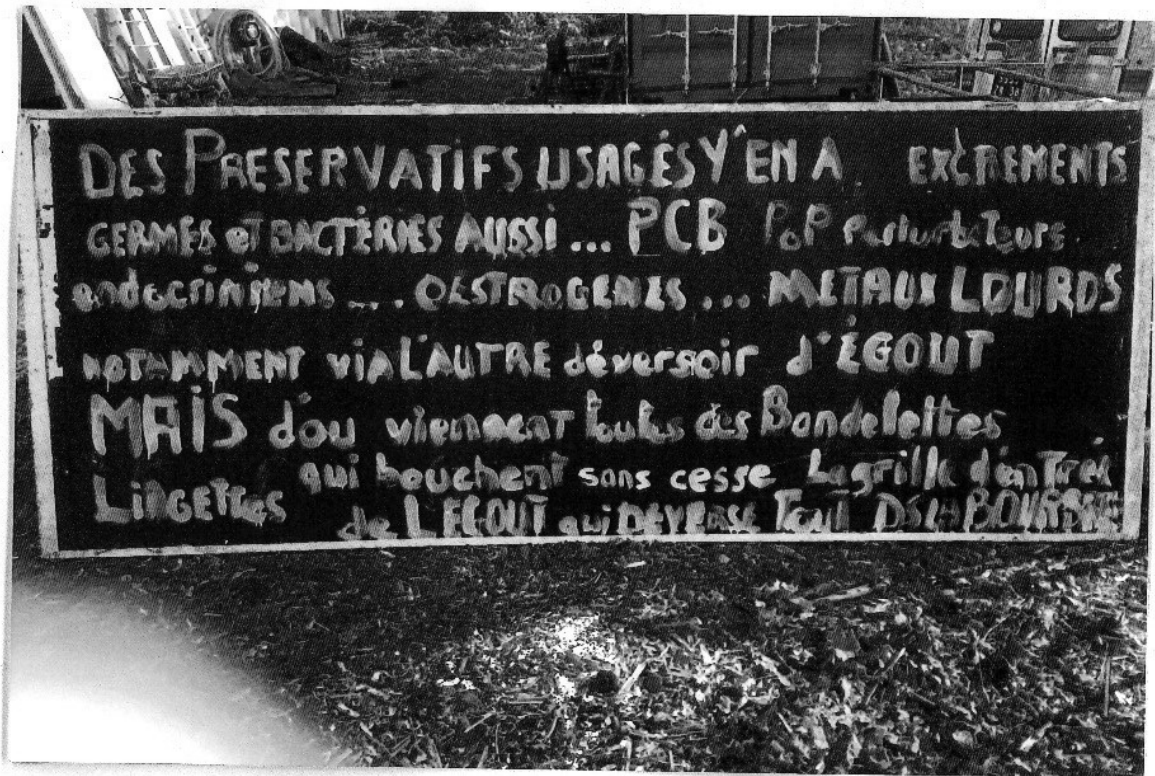 DES PRESERVATIFS USAGÉS Y'EN A EXCREMENTS
GERMES et BACTÉRIES AUSSI ... PCB PoP perturbateurs
endocriniens ... OESTROGENES ... METAUX LOURDS
NOTAMMENT via L'AUTRE déversoir d'ÉGOUT
MAIS d'ou viennent toutes des Bandelettes
LINGETTES qui bouchent sans cesse La grille d'entrée
de L'EGOUT qui DEVERSE TOUT DS LA BOURBRE